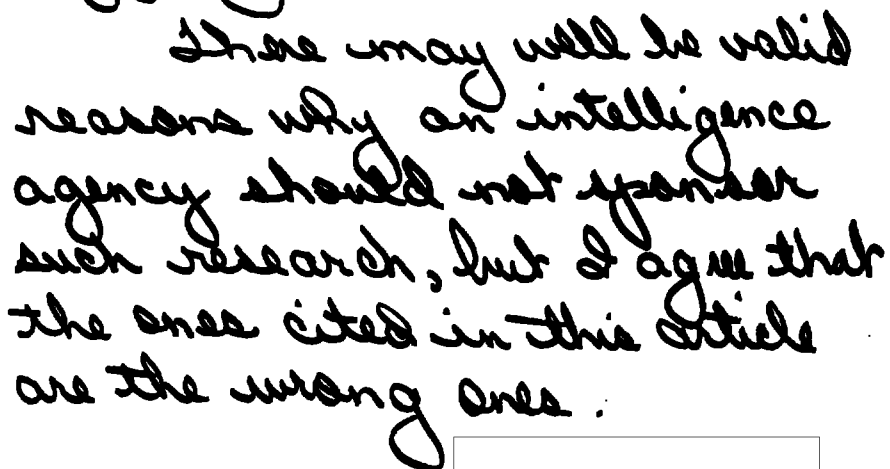 There may well be valid
reasons why an intelligence
agency should not sponsor
such research, but I agree that
the ones cited in this article
are the wrong ones.